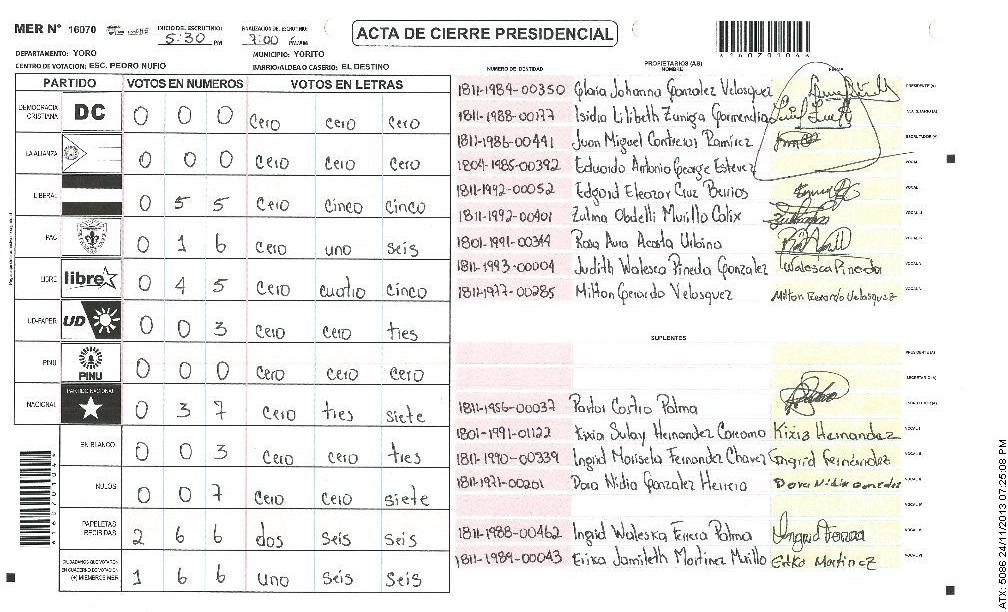 MER Nº 16070
INICIO DEL ESCRUTINIO: 5:30 PM
FINALIZACION DEL ESCRUTINIO: 7:00 PM
ACTA DE CIERRE PRESIDENCIAL
DEPARTAMENTO: YORO
MUNICIPIO: YORITO
CENTRO DE VOTACION: ESC. PEDRO NUFIO
BARRIO/ALDEA O CASERIO: EL DESTINO
PARTIDO VOTOS EN NUMEROS VOTOS EN LETRAS
DEMOCRACIA CRISTIANA DC 0 0 0 Cero cero cero
LA ALIANZA 0 0 0 Cero cero cero
LIBERAL 0 5 5 Cero Cinco cinco
PAC 0 1 6 Cero uno seis
LIBRE libre 0 4 5 Cero cuatro Cinco
UD-FAPER UD 0 0 3 Cero Cero tres
PINU PINU 0 0 0 Cero Cero cero
NACIONAL PARTIDO NACIONAL 0 3 7 Cero tres siete
EN BLANCO 0 0 3 Cero Cero tres
NULOS 0 0 7 Cero Cero siete
PAPELETAS RECIBIDAS 2 6 6 dos seis Seis
CIUDADANOS QUE VOTARON EN CUADERNO DE VOTACION (+) MIEMBROS MER 1 6 6 uno Seis Seis
NUMERO DE IDENTIDAD
PROPIETARIOS (AS)
NOMBRE
FIRMA
1811-1984-00350 Gloria Johanna Gonzalez Velasquez PRESIDENTE (A)
1811-1988-00177 Isidia Lilibeth Zuniga Garmendia SECRETARIO (A)
1811-1986-00441 Juan Miguel Contreras Ramirez ESCRUTADOR (A)
1804-1985-00392 Eduardo Antonio George Estevez VOCAL I
1811-1992-00052 Edgard Eleazar Cruz Berrios
1811-1992-00401 Zulma Obdelli Murillo Calix
1801-1991-00344 Rosa Aura Acosta Urbina
1811-1993-00004 Judith Walesca Pineda Gonzalez Walesca Pineda
1811-1977-00285 Milton Gerardo Velasquez Milton Gerardo Velasquez
SUPLENTES
PRESIDENTE (A)
SECRETARIO (A)
1811-1956-00037 Pastor Castro Palma
1801-1991-01122 Kixia Sulay Hernandez Carcamo Kixia Hernandez
1811-1990-00339 Ingrid Marisela Fernandez Chavez Ingrid Fernández
1811-1971-00201 Dora Nidia Gonzalez Herrera Dora Nidia Gonzalez
1811-1988-00462 Ingrid Waleska Ferrera Palma Ingrid Ferrera
1811-1984-00043 Erika Jamileth Martinez Murillo Erika Martinez
ATX: 5086 24/11/2013 07:25:08 PM